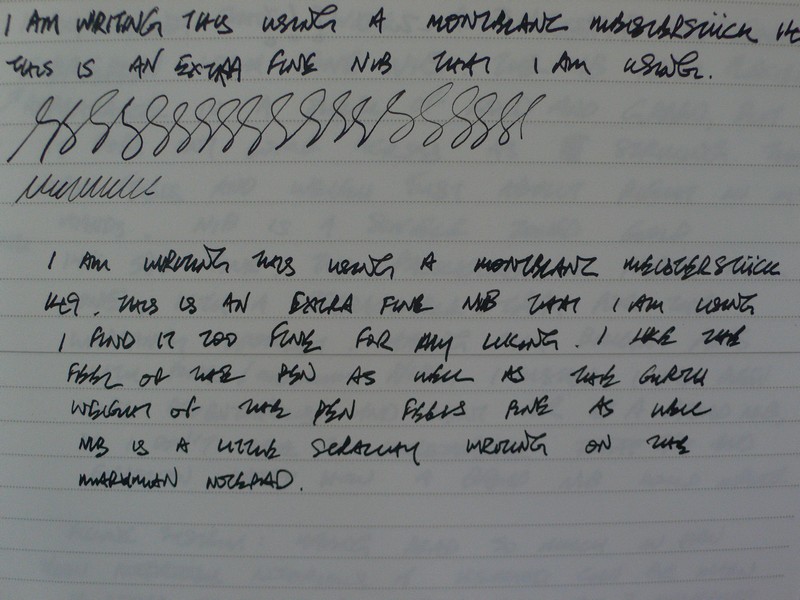 I AM WRITING THIS USING A MONTBLANC MEISTERSTÜCK
THIS IS AN EXTRA FINE NIB THAT I AM USING.
I AM WRITING THIS USING A MONTBLANC MEISTERSTÜCK
149. THIS IS AN EXTRA FINE NIB THAT I AM USING
I FIND IT TOO FINE FOR MY LIKING. I LIKE THE
FEEL OF THE PEN AS WELL AS THE GIRTH
WEIGHT OF THE PEN FEELS FINE AS WELL
NIB IS A LITTLE SCRATCHY WRITING ON THE
MARKMAN NOTEPAD.